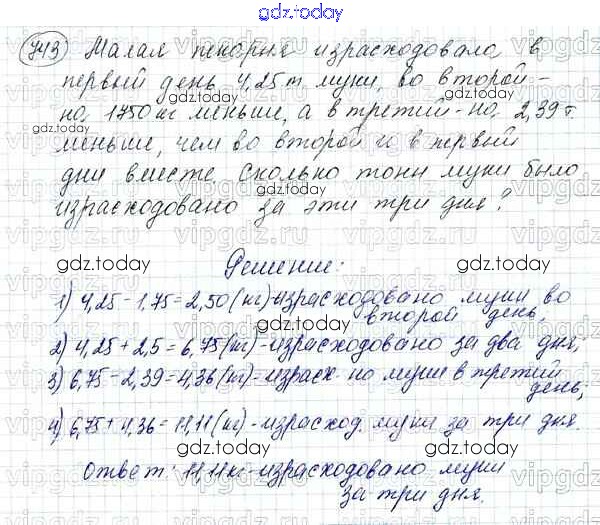 gdz.today
743 Малая пекарня израсходовала в
первый день 4,25 т муки, во второй –
на 1750 кг меньше, а в третий – на 2,39 т.
меньше, чем во второй и в первый
дни вместе. Сколько тонн муки было
израсходовано за эти три дня?
Решение:
1) 4,25 – 1,75 = 2,50 (кг) – израсходовано муки во
второй день,
2) 4,25 + 2,5 = 6,75 (кг) – израсходовано за два дня;
3) 6,75 – 2,39 = 4,36 (кг) – израсх-но муки в третий
день,
4) 6,75 + 4,36 = 11,11 (кг) – израсход. муки за три дня.
Ответ: 11,11 кг – израсходовано муки
за три дня.
gdz.today